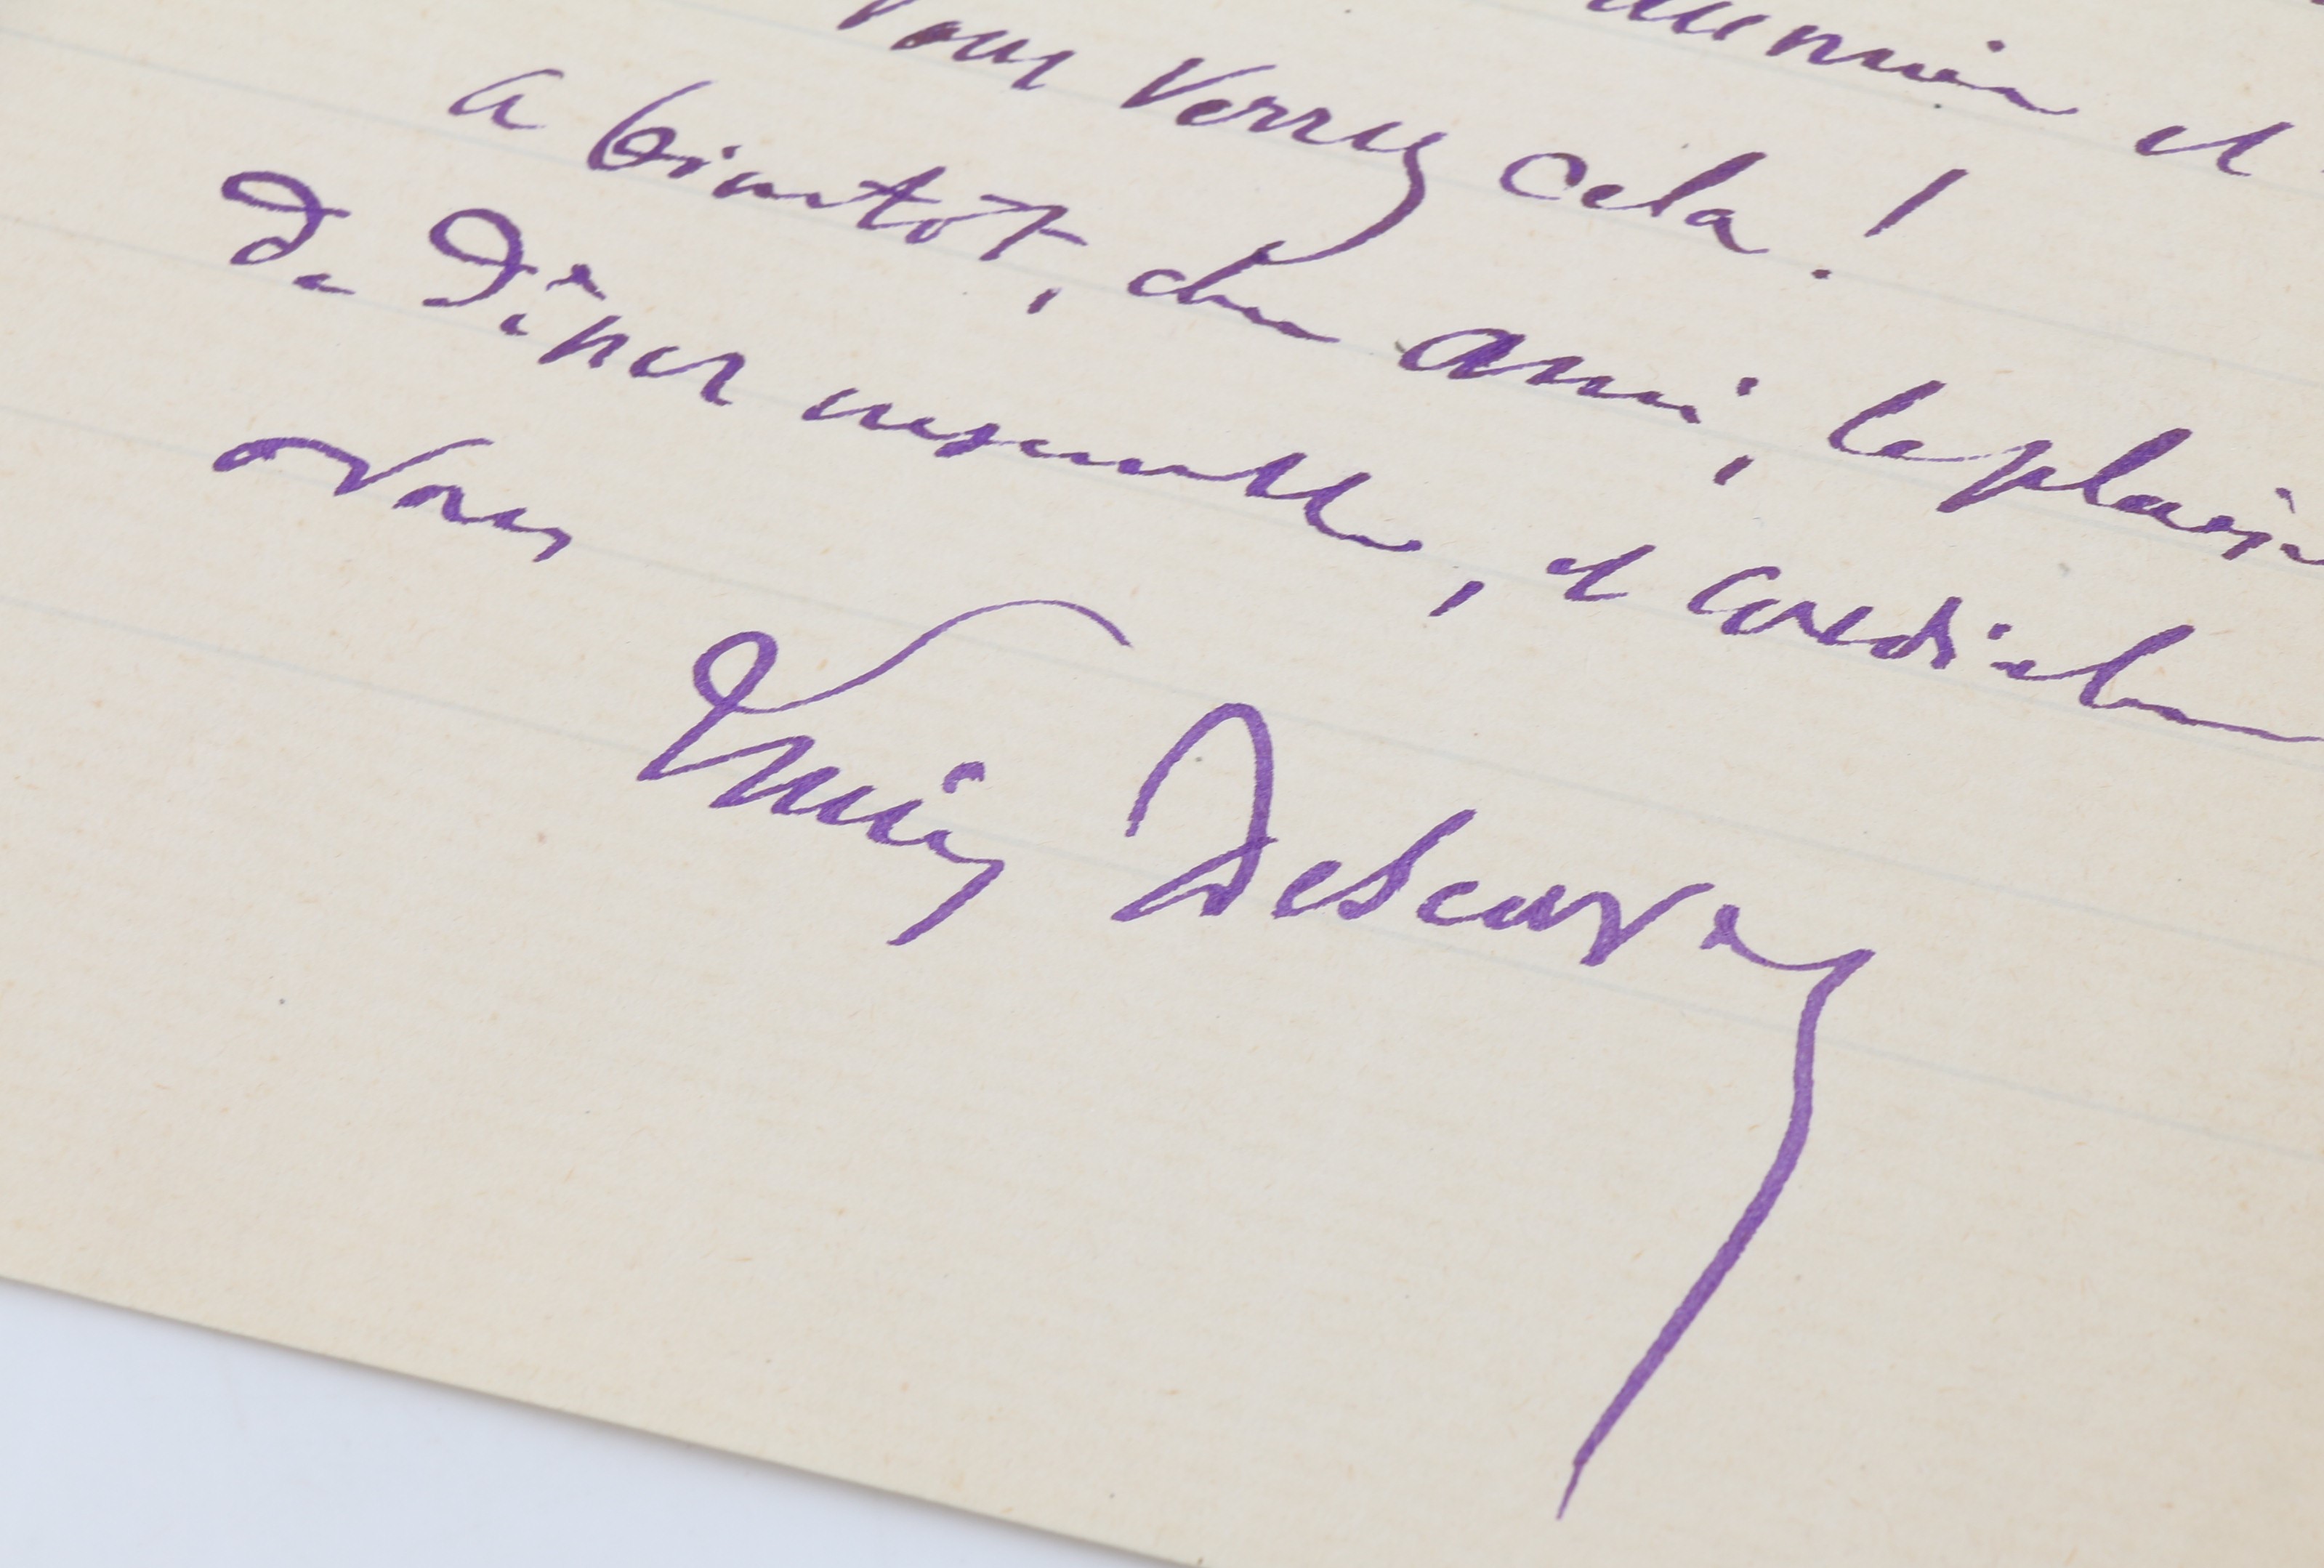 et
vous verrez cela !
a bientôt, cher ami, le plaisir
de dîner ensemble, et cordiale
à vous
Lucien Descaves